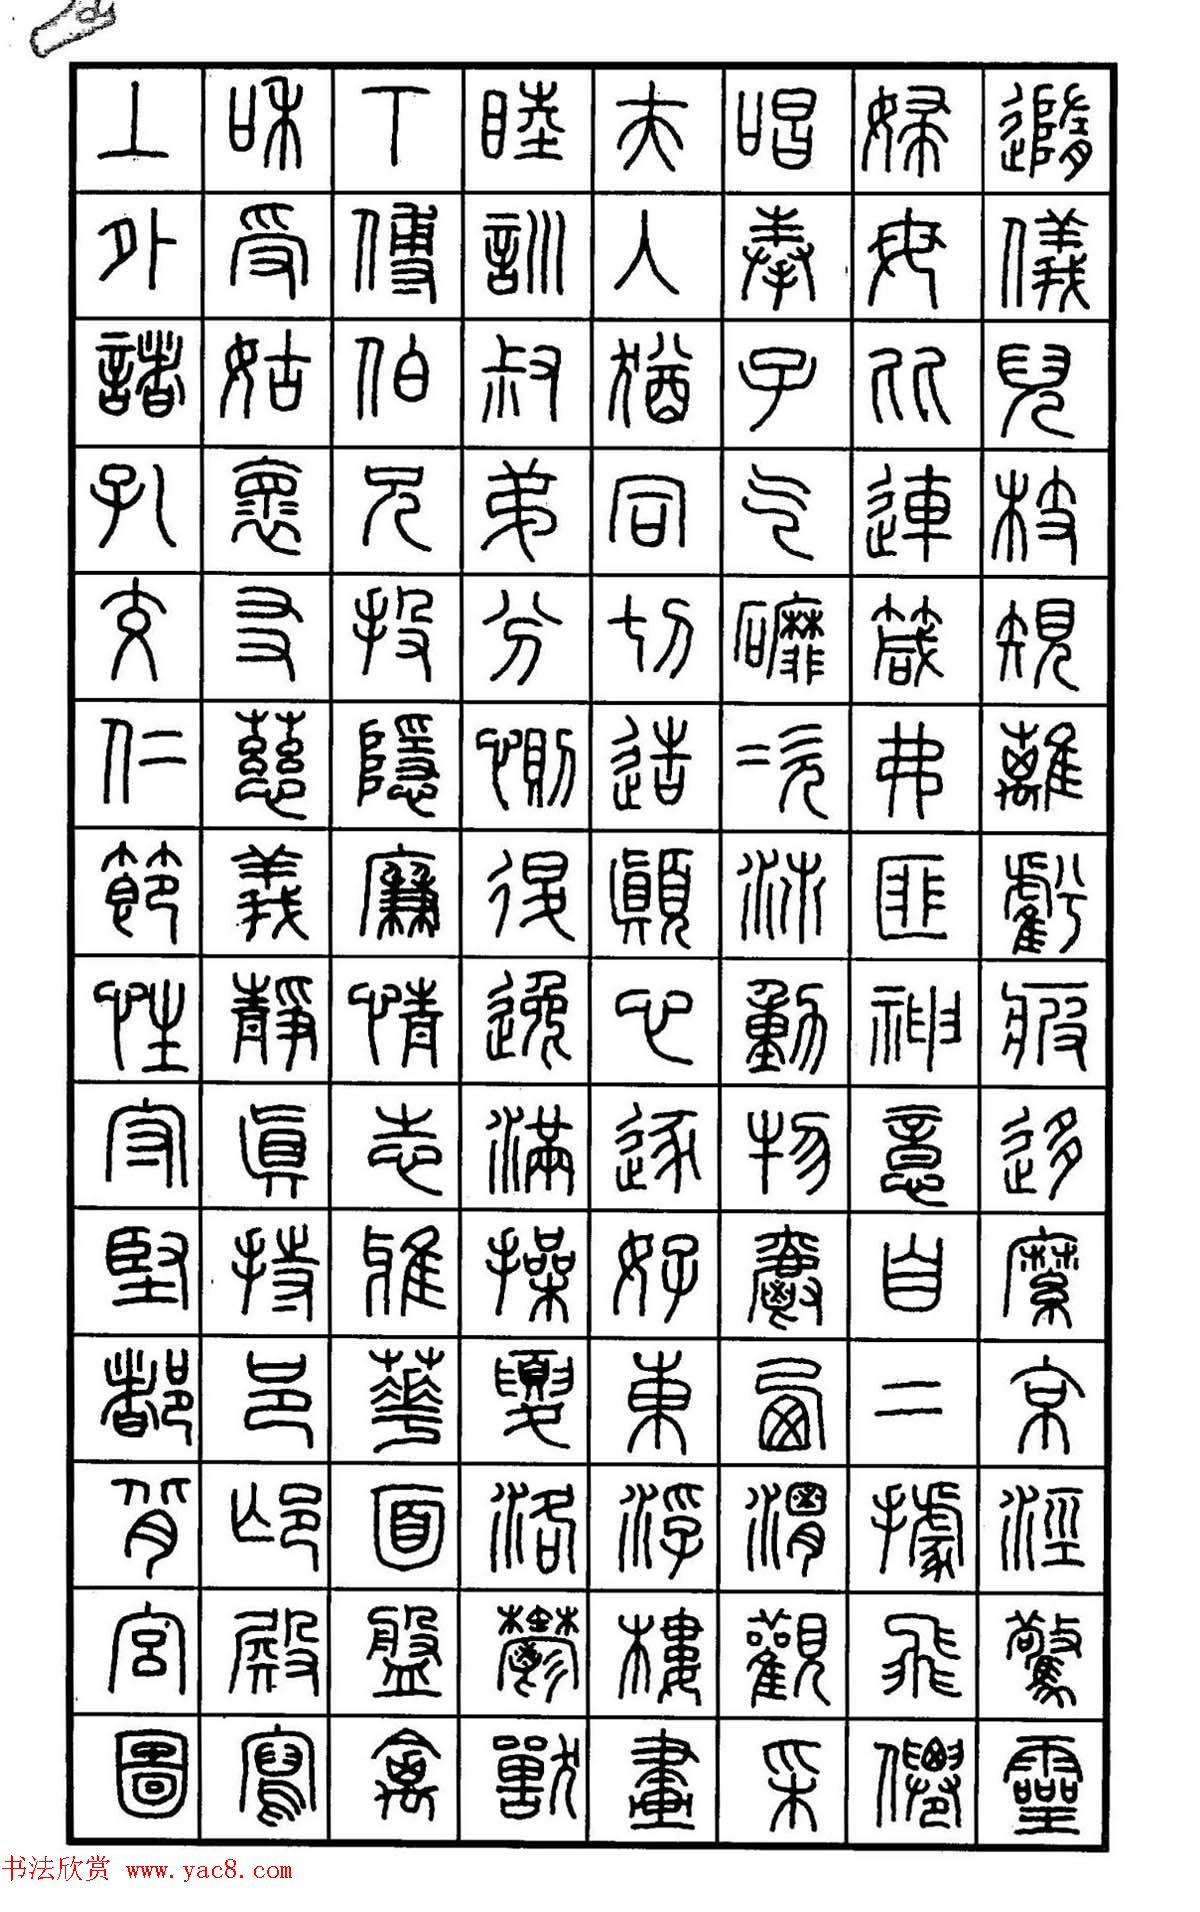 上和下睦夫唱婦隨
外受傅訓入奉母儀
諸姑伯叔猶子比兒
孔懷兄弟同气連枝
交友投分切磨箴規
仁慈隱惻造次弗離
節義廉退顛沛匪虧
性靜情逸心動神疲
守真志滿逐物意移
堅持雅操好爵自縻
都邑華夏東西二京
背邙面洛浮渭據涇
宮殿盤鬱樓觀飛驚
圖寫禽獸畫采僊靈
书法欣赏 www.yac8.com